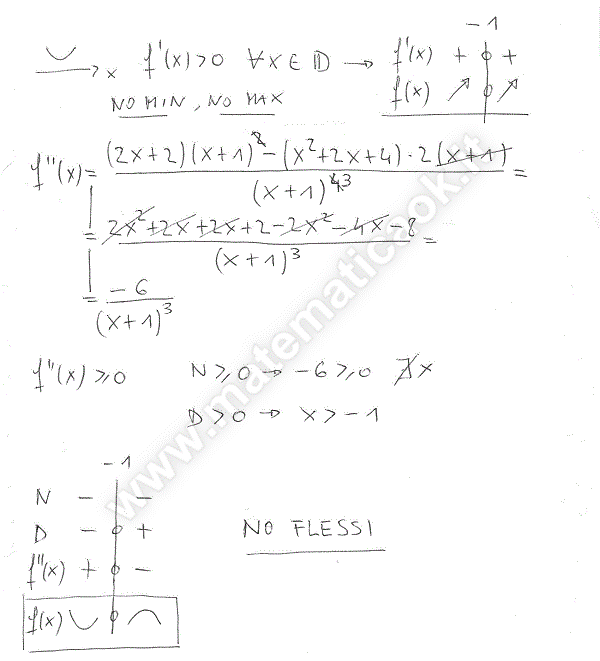 -1
x f'(x)>0 ∀x∈D → f'(x) + +
NO MIN, NO MAX f(x) ↗ ↗
f''(x)= (2x+2)(x+1)^2-(x²+2x+4)·2(x+1) / (x+1)^4 3 =
= 2x²+2x+2x+2-2x²-4x-8 / (x+1)³ =
= -6 / (x+1)³
f''(x)≥0 N≥0 → -6≥0 ∄x
D>0 → x>-1
-1
N - -
D - +
NO FLESSI
f''(x) + -
f(x) ◡ ◠
www.matematicaok.it